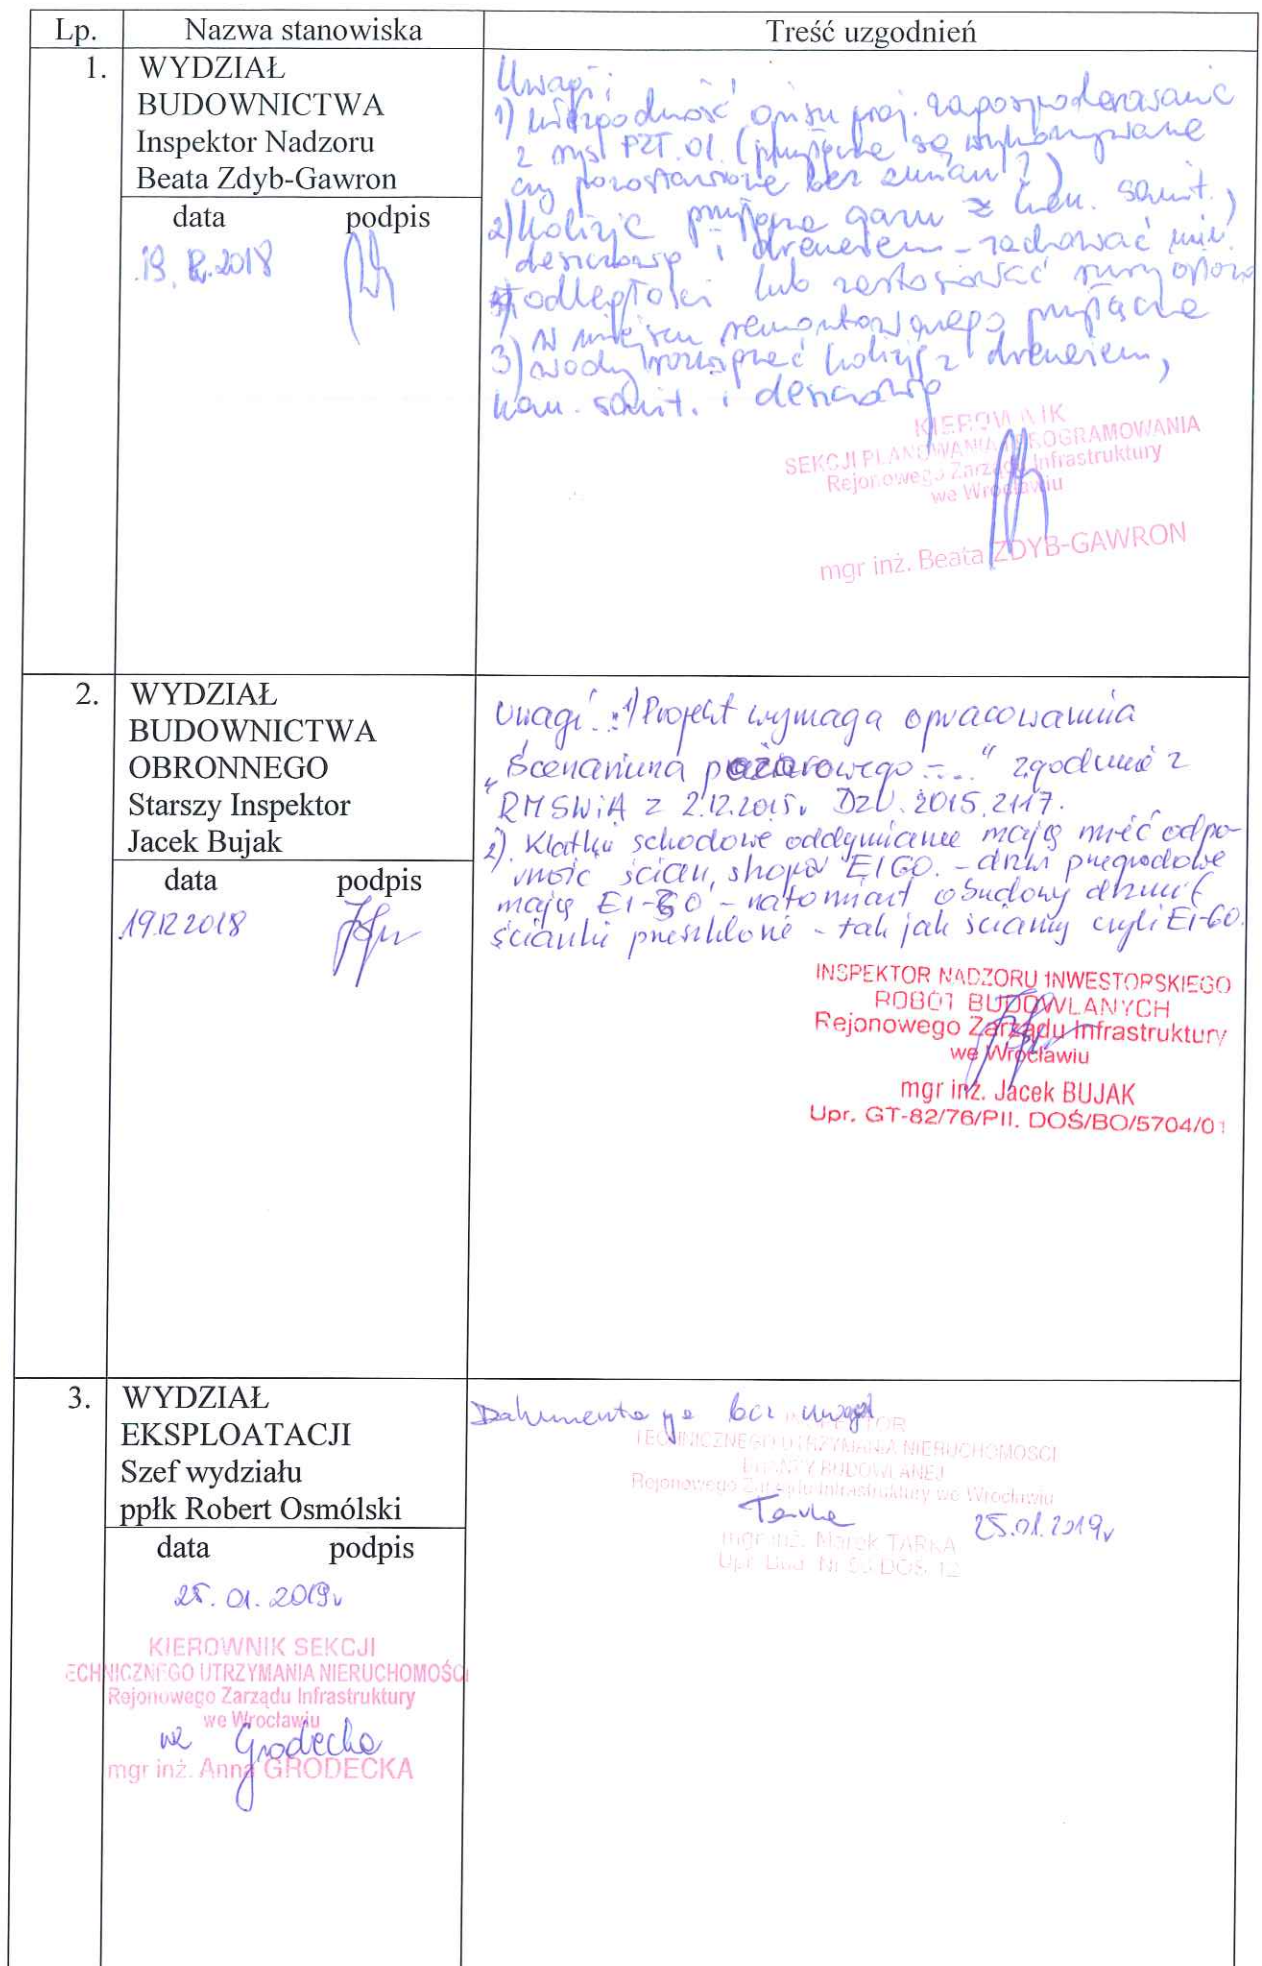 Lp. Nazwa stanowiska Treść uzgodnień
1. WYDZIAŁ
BUDOWNICTWA
Inspektor Nadzoru
Beata Zdyb-Gawron
data podpis
19.12.2018
Uwagi:
1) niezgodność opisu proj. zagospodarowania
z rys. PZT.01. (przyłącza są wykonywane
czy pozostawione bez zmian?)
2) Kolizje przyłącza gazu z kan. sanit.,
deszczową i drenażem - zachować min.
odległości lub zastosować rury
W miejscu remontowanego przyłącza
3) wody rozwiązać kolizję z drenażem,
kan. sanit. i deszczową
KIEROWNIK
SEKCJI PLANOWANIA I PROGRAMOWANIA
Rejonowego Zarządu Infrastruktury
we Wrocławiu
mgr inż. Beata ZDYB-GAWRON
2. WYDZIAŁ
BUDOWNICTWA
OBRONNEGO
Starszy Inspektor
Jacek Bujak
data podpis
19.12.2018
Uwagi: 1) Projekt wymaga opracowania
"Scenariusza pożarowego - ..." zgodnie z
RMSWiA z 2.12.2015r. DzU.2015.2117.
2). Klatki schodowe oddymiane mają mieć odpo-
ność ścian, stropu EI60. - drzwi przegrodowe
mają EI-30 - natomiast obudowy drzwi (
ścianki przeszklone - tak jak ściany czyli EI-60.
INSPEKTOR NADZORU INWESTORSKIEGO
ROBÓT BUDOWLANYCH
Rejonowego Zarządu Infrastruktury
we Wrocławiu
mgr inż. Jacek BUJAK
Upr. GT-82/76/PII. DOŚ/BO/5704/01
3. WYDZIAŁ
EKSPLOATACJI
Szef wydziału
ppłk Robert Osmólski
data podpis
25.01.2019r
KIEROWNIK SEKCJI
ECHNICZNEGO UTRZYMANIA NIERUCHOMOŚCI
Rejonowego Zarządu Infrastruktury
we Wrocławiu
wz Grodecka
mgr inż. Anna GRODECKA
Dokumentacja bez uwag
INSPEKTOR
TECHNICZNEGO UTRZYMANIA NIERUCHOMOŚCI
BRANŻY BUDOWLANEJ
Rejonowego Zarządu Infrastruktury we Wrocławiu
Tarka 25.01.2019r
mgr inż. Marek TARKA